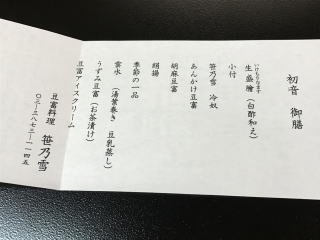 初音 御膳
いけもりなます
生盛膾（白酢和え）
小付
笹乃雪 冷奴
あんかけ豆富
胡麻豆富
絹揚
季節の一品
雲水（湯葉巻き 豆乳蒸し）
うずみ豆富（お茶漬け）
豆富アイスクリーム
豆富料理 笹乃雪
〇三-三八七三-一一四五